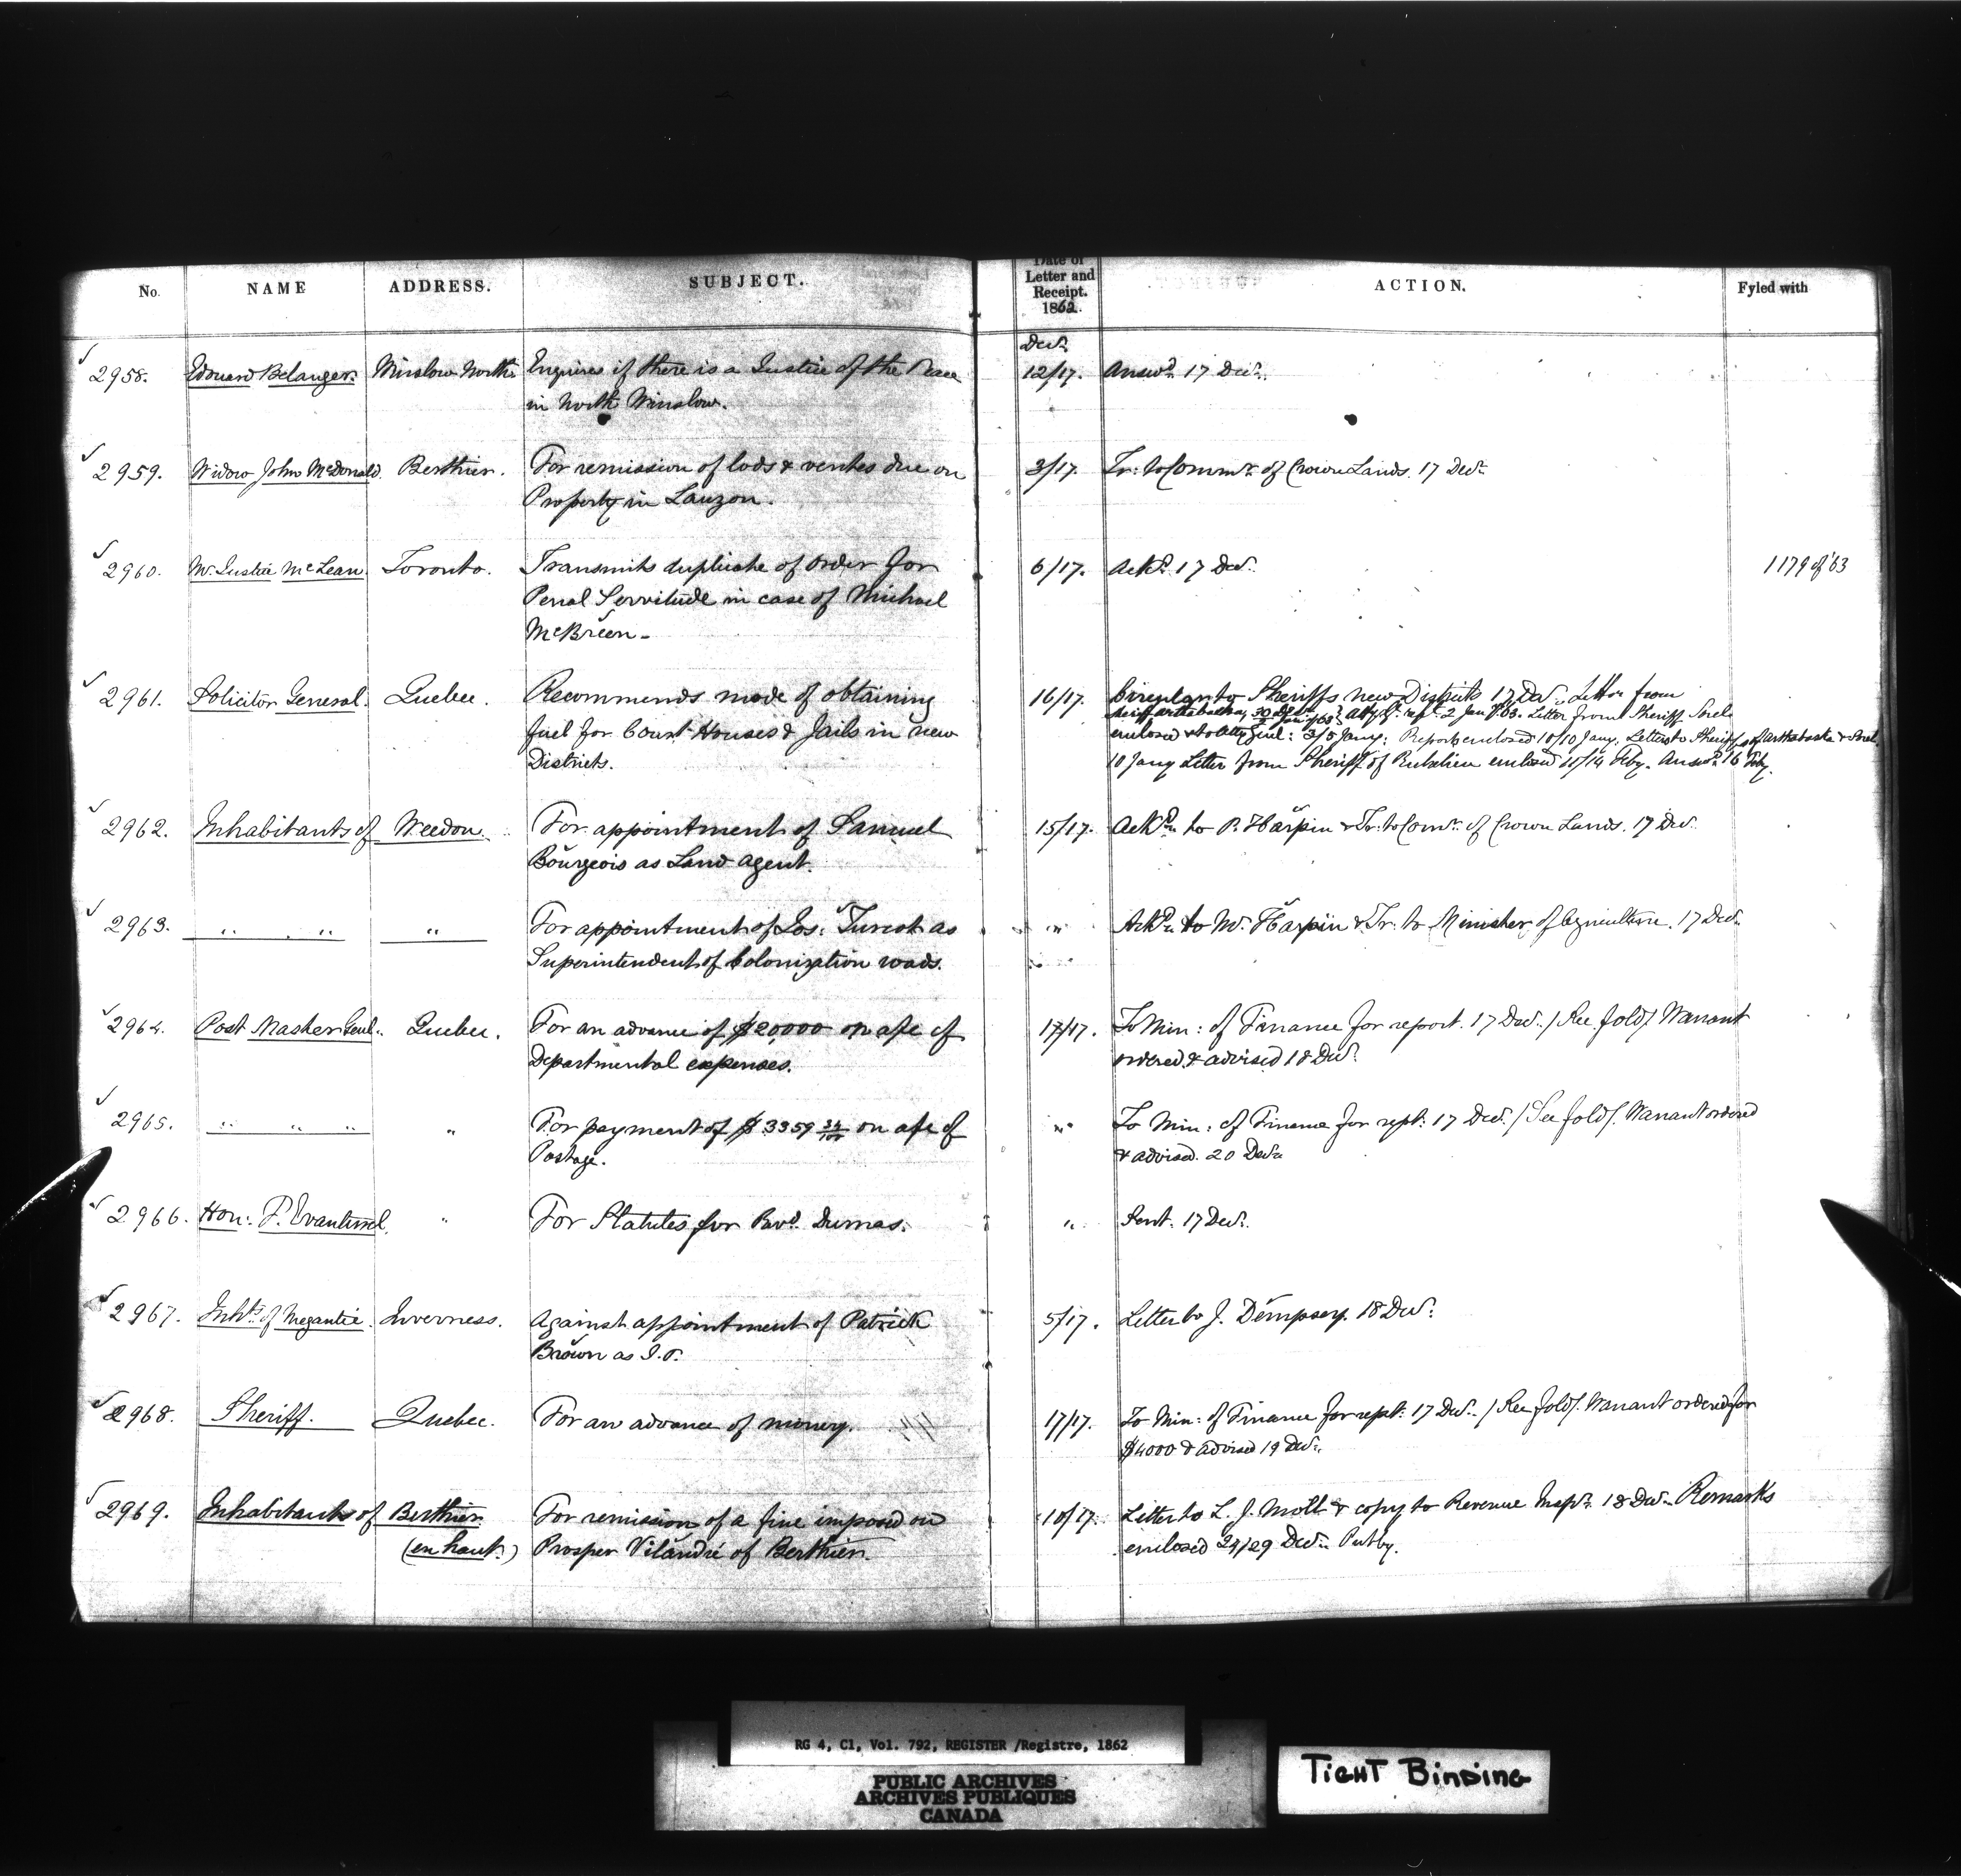 No. NAME ADDRESS. SUBJECT. Date of Letter and Receipt. 1862. ACTION. Fyled with
Decr.
2958. Edouard Belanger. Winslow North Enquires if there is a Justice of the Peace 12/17. Answd. 17 Decr.
in North Winslow.
2959. Widow John McDonald. Berthier. For remission of lods & ventes due on 3/17. Tr: to Commr. of Crown Lands. 17 Decr.
Property in Lauzon.
2960. Mr. Justice McLean. Toronto. Transmits duplicate of order for 6/17. Ackd. 17 Decr. 1179 of '63
Penal Servitude in case of Michael
McBreen -
2961. Solicitor General. Quebec. Recommends mode of obtaining 16/17. Circular to Sheriffs new Districts 17 Decr. Letter from
fuel for Court Houses & Jails in new Sheriff Arthabaska, 2 Jany 63. Letter from Sheriff Sorel
Districts. enclosed & to Atty Genl: 3/5 Jany: Report enclosed 10/10 Jany. Letters to Sheriffs of Arthabaska & Sorel.
10 Jany Letter from Sheriff of Richelieu enclosed 10/14 Feby. Answd. 16 Feby.
2962. Inhabitants of Weedon. For appointment of Samuel 15/17. Ackd. to P. Harpin & Tr: to Comr. of Crown Lands. 17 Decr.
Bourgeois as Land Agent.
2963. " " " For appointment of Jos: Turcot as " Ackd. to Mr. Harpin & Tr: to Minister of Agriculture. 17 Decr.
Superintendent of Colonization roads.
2964. Post Master Genl. Quebec. For an advance of $20,000 on a/c of 17/17. To Min: of Finance for report. 17 Decr. / See fold/. Warrant
Departmental expenses. ordered & advised 18 Decr.
2965. " " " " For payment of $3359 34/100 on a/c of " To Min: of Finance for rept: 17 Decr. / See fold/. Warrant ordered
Postage. & advised. 20 Decr.
2966. Hon: F. Evanturel. " For Statutes for Revd. Dumas. " Sent. 17 Decr.
2967. Inhts. of Megantic. Inverness. Against appointment of Patrick 5/17. Letter to J. Dempsey. 18 Decr.
Brown as J.P.
2968. Sheriff. Quebec. For an advance of money. 17/17. To Min: of Finance for rept: 17 Decr. / See fold/. Warrant ordered for
$4000 & advised 19 Decr.
2969. Inhabitants of Berthier For remission of a fine imposed on 10/17. Letter to L. J. Moll & copy to Revenue Inspr. 18 Decr. Remarks
(en haut.) Prosper Vilandré of Berthier. enclosed 24/29 Decr. Put by.
RG 4, C1, Vol. 792, REGISTER /Registre, 1862
PUBLIC ARCHIVES
ARCHIVES PUBLIQUES
CANADA
TIGHT BINDING